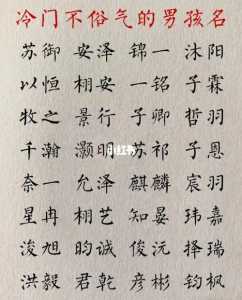 冷门不俗气的男孩名
苏御 安泽 锦一 沐阳
以恒 栩安 一铭 子霖
牧之 景行 子卿 哲羽
千瀚 灏明 苏祁 子恩
小红书
奈一 允泽 麒麟 宸羽
星冉 栩艺 知晏 玮嘉
浚旭 昀诚 俊沅 择瑞
洪毅 君乾 彦彬 钧枫